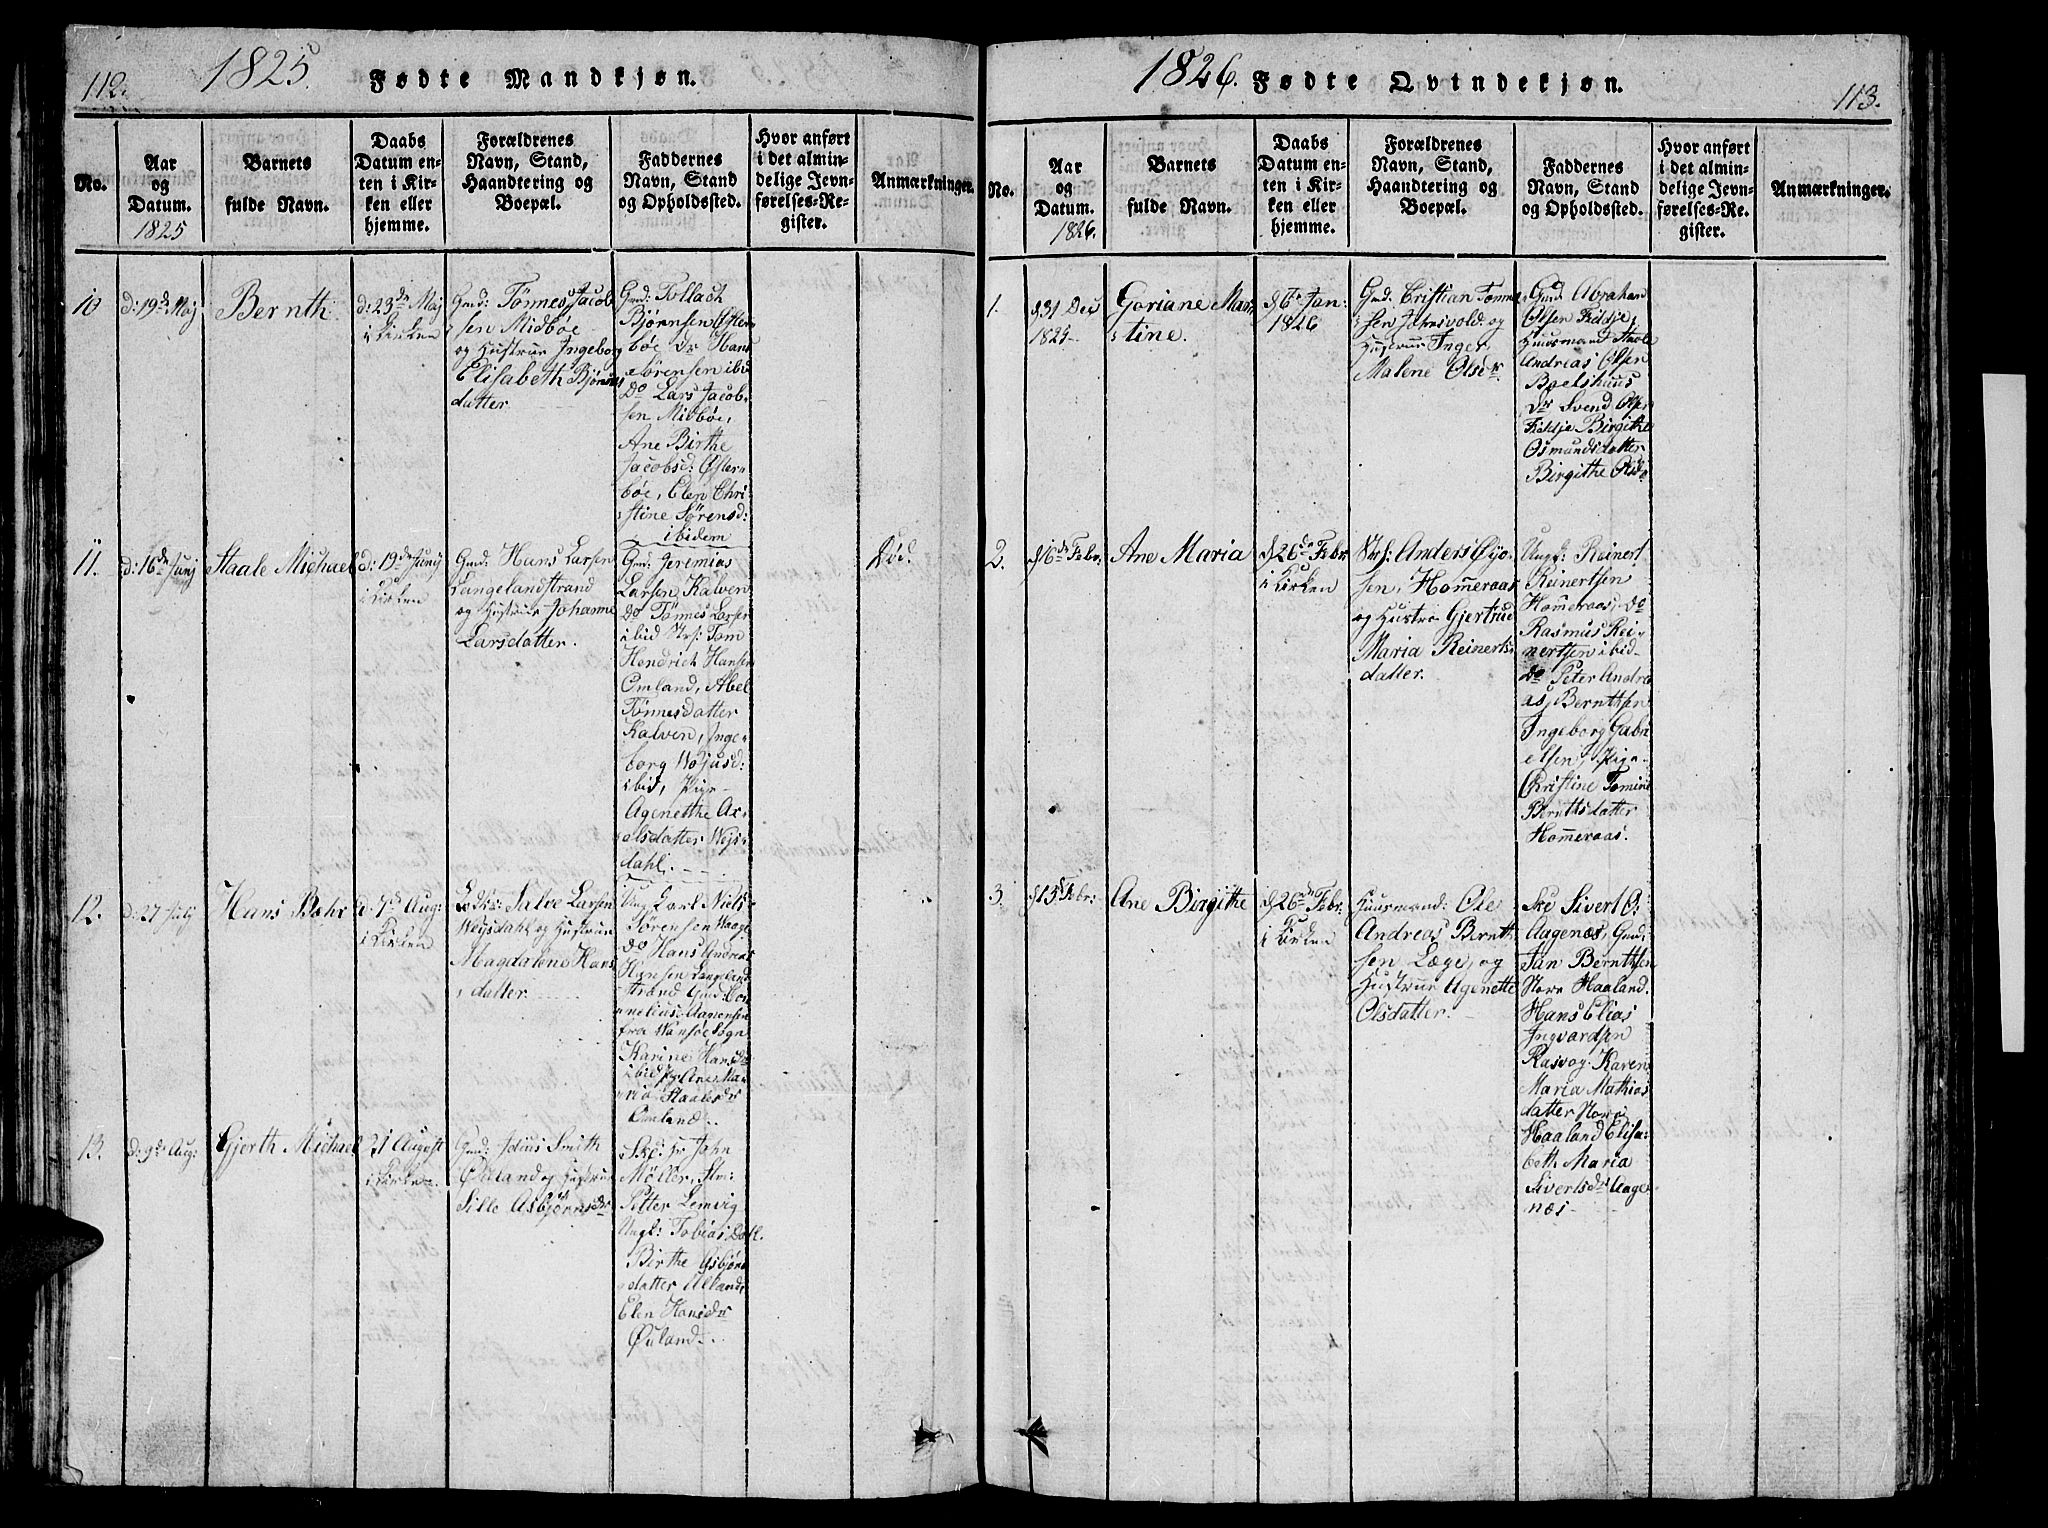 112.
1825
Fødte Mandkjøn.
No.
Aar
og
Datum.
1825
Barnets
fulde Navn.
Daabs
Datum en-
ten i Kir-
ken eller
hjemme.
Forældrenes
Navn, Stand,
Haandtering og
Boepæl.
Faddernes
Navn, Stand
og Opholdssted.
Hvor anført
i det almin-
delige Jevn-
førelses-Re-
gister.
Anmærkninger.
10
d: 19de Maj
Bernth
d: 23de Maj
i Kirken
Gmd: Tønnes Jacob
sen Midbøe
og Hustrue Ingeborg
Elisabeth Bjørns
datter
Gmd: Tollach
Bjørnsen Øster
bøe Do Hans
Sørensen ibd
Do Lars Jacob-
sen Midbøe,
Ane Birthe
Jacobsd: Øster-
bøe, Elen Chri-
stine Sørensd:
ibidem
11.
d: 16de Junj
Staale Michael
d: 19de Junij
i Kirken
Gmd: Hans Larsen
Langelandstrand
og Hustrue Johanne
Larsdatter.
Gmd: Jeremias
Larsen, Kalven
Do Tønnes Larsen
ibid Str: Tom
Hendrich Hansen
Omland, Abel
Tønnesdatter
Kalven, Inge-
borg
ibid, Pige
Agenethe Ax-
elsdatter Wejs-
dahl.
Død.
12.
d: 27 July
Hans Bøhr
d: 7de Aug:
i Kirken
Salve Larsen
Weysdahl og Hustrue
Magdalene Hans
datter.
Ung: Carl Niels
Sørensen Waage
Do Hans Andreas
Hansen Langeland
strand Gmd: Cor
nelius Aanensen
fra Wansøe Sogn
Karine Hansdr
ibid Pige Ane Ma-
ria Staalesdr
Omland.
13.
d: 9de Aug:
Gjerth Michael
21 August
i Kirken.
Gmd: Joius Smith
Øuland og Hustrue
Sille Asbjørnsdr
Ske: hr John
Møller,
Pitter Lemvig
Ungk: Tobias Doll.
Birthe Asbjørns
datter Ulland,
Elen Hansdr
Øuland.
1826.
Fødte Qvindekjøn.
113.
No.
Aar
og
Datum.
1826.
Barnets
fulde Navn.
Daabs
Datum en-
ten i Kir-
ken eller
hjemme.
Forældrenes
Navn, Stand,
Haandtering og
Boepæl.
Faddernes
Navn, Stand
og Opholdssted.
Hvor anført
i det almin-
delige Jevn-
førelses-Re-
gister.
Anmærkninger.
1.
d 31 Dec
1825
Goriane Mar
tine.
d 6te Jan:
1826
Gmd: Cristian Tønne
sen og
Hustrue Inger
Malene Olsdr.
Gmd: Abraham
Olsen Kildje,
Huusmand Staale
Andreas Olsen
Boelshuus
Dr Svend Olsen
Kildje Birgithe
Osmundsdatter
Birgithe Olsdr
2.
d 16de Febr:
Ane Maria
d 26de Febr
i Kirken
Str: Anders Øjo
sen, Homeraas
og Hustru Gjertrud
Maria Reinerts-
datter.
Ungk: Reinert
Reinertsen
Homeraas, do
Rasmus Rei-
nertsen ibid-
do Peter Andre
as Berntsen
Ingeborg Gabri
elsen, Pige
Christine Tomine
Berntsdatter
Homeraas.
3.
d 15 Febr:
Ane Birgithe
d 26de Febr:
i Kirken
Huusmand: Ole
Andreas Bernt-
sen Læge, og
Hustrue Agenette
Olsdatter.
Ske Sivert O:
Aagenæs, Gmd:
Jan Berntsen
Nore Haaland.
Hans Elias
Ingvardsen
Rasvog, Karen
Maria Mathias
datter Nore
Haaland Elisa-
beth Maria
Sivertsdr Aage
næs